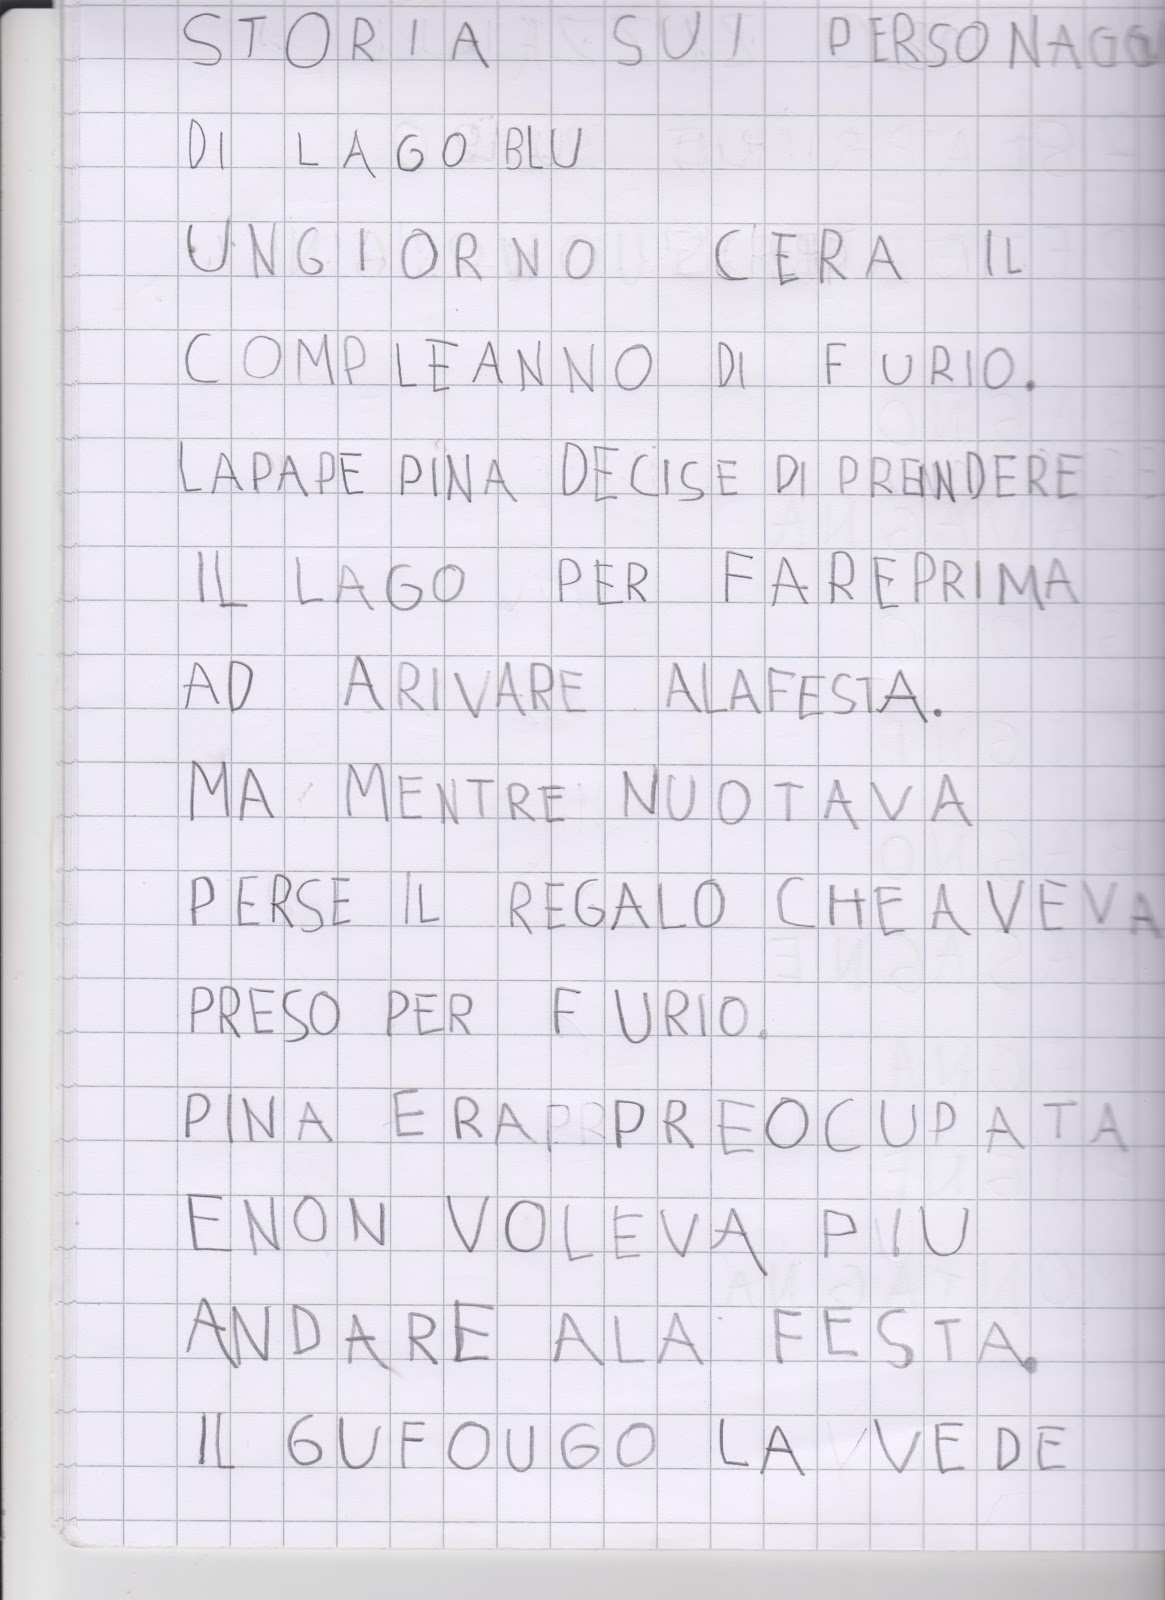 STORIA SUI PERSONAGG
DI LAGO BLU
UN GIORNO CERA IL
COMPLEANNO DI FURIO.
LA PAPE PINA DECISE DI PRENDERE
IL LAGO PER FARE PRIMA
AD ARIVARE ALA FESTA.
MA MENTRE NUOTAVA
PERSE IL REGALO CHE AVEVA
PRESO PER FURIO.
PINA ERA PREOCUPATA
E NON VOLEVA PIU
ANDARE ALA FESTA.
IL GUFO UGO LA VEDE